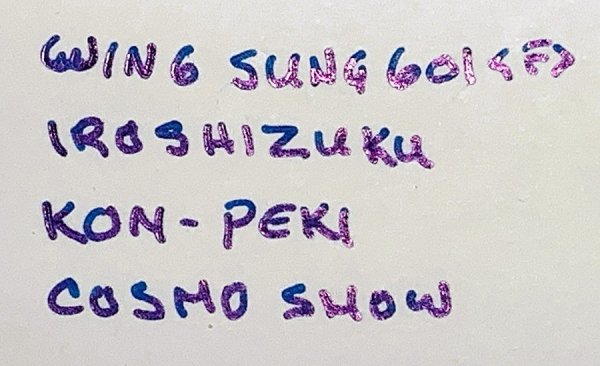 WING SUNG 601 <F>
IROSHIZUKU
KON-PEKI
COSMO SNOW